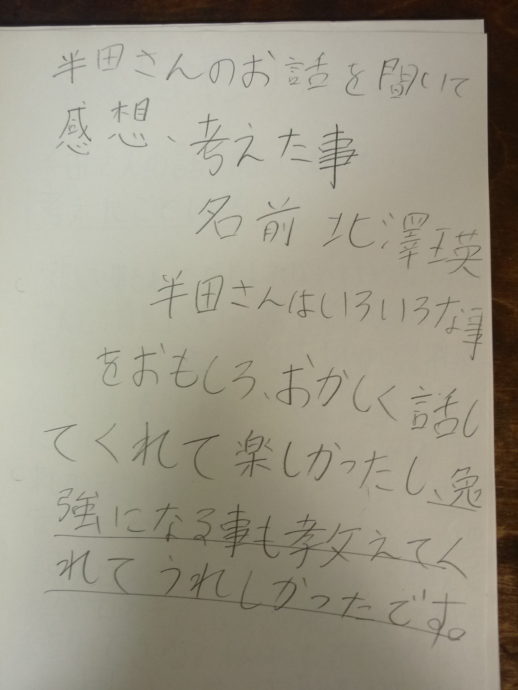 半田さんのお話を聞いて
感想、考えた事
名前 北澤瑛
半田さんはいろいろな事
をおもしろ、おかしく話し
てくれて楽しかったし、勉
強になる事も教えてく
れてうれしかったです。